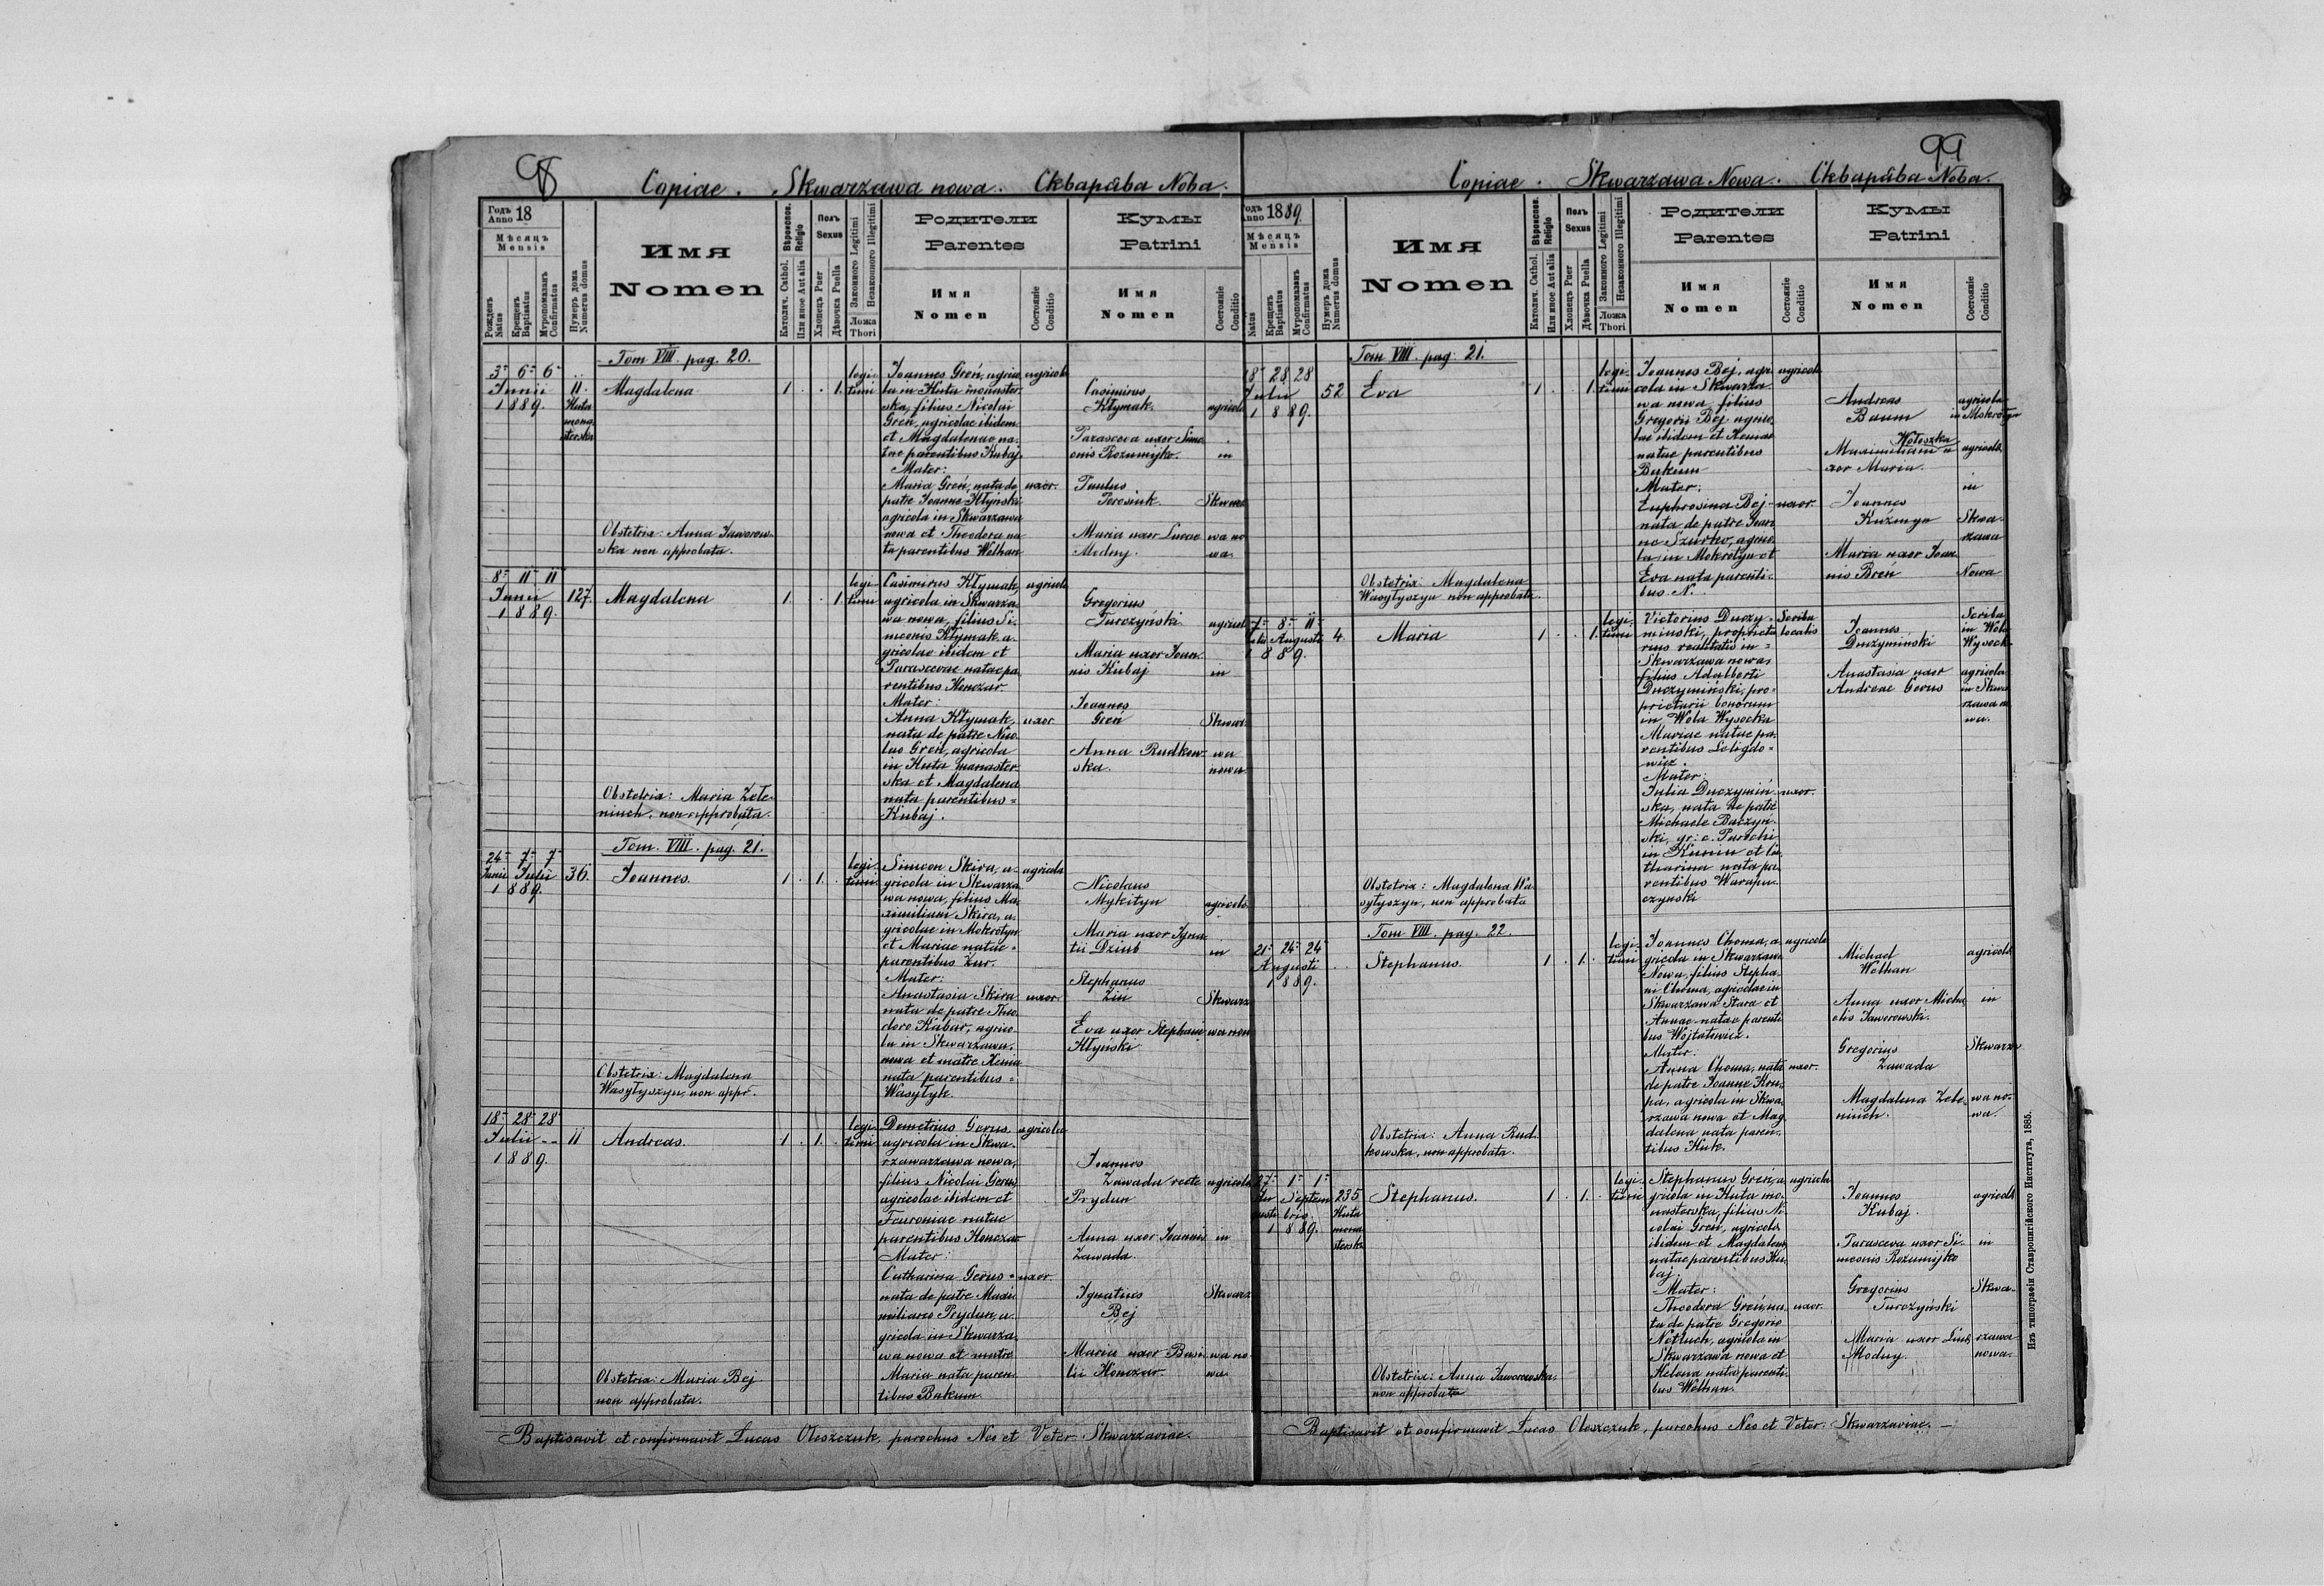 98
Copiae. Skwarzawa nowa. Скварѣва Нова.
Годъ Anno 18
Мѣсяцъ
Mensis
Рожденъ
Natus
Крещенъ
Baptisatus
Мѵропомазанъ
Confirmatus
Нумеръ дома
Numerus domus
Имя
Nomen
Вѣроиспов.
Religio
Католич. Cathol.
Или иное Aut alia
Полъ
Sexus
Хлопецъ Puer
Дѣвочка Puella
Законного Legitimi
Незаконного Illegitimi
Ложа
Thori
Родители
Parentes
Имя
Nomen
Состояніе
Conditio
Кумы
Patrini
Имя
Nomen
Состояніе
Conditio
Tom VIII. pag. 20.
3 6 6
Junii
1889.
11.
Huta
mona
sterska
Magdalena
1 . . 1.
legi-
timi
Joannes Greń, agrico
la in Huta monaster-
ska, filius Nicolai
Greń, agricolae ibidem
et Magdalenae na-
tae parentibus Kubaj.
Mater:
Maria Greń, nata de
patre Joanne Hłyński
agricola in Skwarzawa
nowa et Theodora na-
ta parentibus Wethan
agricola
uxor.
Casimirus
Kłymak.
Parasceva uxor Sime
onis Rozumijko.
Paulus
Perosiuk.
Maria uxor Lucae
Modny.
agricola
in
Skwarza
wa no
wa.
Obstetrix: Anna Jaworow-
ska non approbata.
8 11 11
Junii
1889.
127.
Magdalena
1. . . 1.
legi-
timi
Casimirus Kłymak,
agricola in Skwarza
wa nowa, filius Si-
meonis Kłymak, a-
gricolae ibidem et
Parascevae natae pa-
rentibus Konczar.
Mater:
Anna Kłymak,
nata de patre Nico
lao Greń, agricola
in Huta monaster-
ska et Magdalena
nata parentibus
Kubaj.
agricola
uxor
Gregorius
Turczyński
Maria uxor Joan-
nis Kubaj
Joannes
Greń
Anna Rudkow-
ska.
agricola
in
Skwarza
wa
nowa
Obstetrix: Maria Zełe-
niuch, non approbata.
Tom. VIII. pag. 21.
24 7 7
Junii Julii
1889.
36.
Joannes.
1. . 1.
legi-
timi
Simeon Skira, a-
gricola in Skwarza
wa nowa, filius Ma-
ximiliani Skira, a-
gricolae in Mokrotyn
et Mariae natae
parentibus Żur.
Mater:
Anastasia Skira
nata de patre Theo
doro Kabar, agrico-
la in Skwarzawa
nowa et matre Xenia
nata parentibus
Wasyłyk.
agricola
uxor.
Nicolaus
Mykityn
Maria uxor Igna
tii Dziub
Stephanus
Zin
Eva uxor Stephani
Hłyński
agricola
in
Skwarza
wa nova
Obstetrix: Magdalena
Wasyłyszyn, non appr.
18 28 28
Julii
1889.
11
Andreas.
1. . 1.
legi-
timi
Demetrius Gerus,
agricola in Skwa-
rzawarzawa nowa,
filius Nicolai Gerus
agricolae ibidem et
Feuroniae natae
parentibus Konczar
Mater:
Catharina Gerus
nata de patre Maxi
miliano Prydun, a-
gricola in Skwarza
wa nowa et matre
Maria nata paren-
tibus Bakum.
agricola
uxor.
Joannes
Zawada recte
Prydun
Anna uxor Joannis
Zawada.
Ignatius
Bej
Maria uxor Basi
lii Konczar.
agricola
in
Skwarza
wa no-
wa.
Obstetrix: Maria Bej
non approbata.
Baptisavit et confirmavit Lucas Oleszczuk, parochus Neo et Veter: Skwarzaviae.
99
Copiae. Skwarzawa Nowa. Скварѣва Нова.
Годъ Anno 1889.
Мѣсяцъ
Mensis
Natus
Крещенъ
Baptisatus
Мѵропомазанъ
Confirmatus
Нумеръ дома
Numerus domus
Имя
Nomen
Вѣроиспов.
Religio
Католич. Cathol.
Или иное Aut alia
Полъ
Sexus
Хлопецъ Puer
Дѣвочка Puella
Законного Legitimi
Незаконного Illegitimi
Ложа
Thori
Родители
Parentes
Имя
Nomen
Состояніе
Conditio
Кумы
Patrini
Имя
Nomen
Состояніе
Conditio
Tom VIII. pag. 21.
18 28 28
Julii
1889.
52
Eva
1. . . 1.
legi-
timi
Joannes Bej, agri
cola in Skwarza-
wa nowa, filius
Gregorii Bej agrico
lae ibidem et Xeniae
natae parentibus
Bakum
Mater:
Euphrosina Bej
nata de patre Joan
ne Szurko, agrico
la in Mokrotyn et
Eva nata parenti-
bus N.
agricola
uxor.
Andreas
Baum
Wołoszka
Maximiliani u
xor Maria.
Joannes
Kuźmyn
Maria uxor Joan
nis Breń
agricola
in Mokrotyn
agricola
in
Skwa-
rzawa
Nowa
Obstetrix: Magdalena
Wasyłyszyn non approbata.
7 8 11
Julii Augusti
1889.
4.
Maria
1. . . 1.
legi-
timi
Victorius Duczy-
minski, proprieta
rius realitatis in
Skwarzawa nowa,
filius Adalberti
Duczymiński, pro-
prietarii bonorum
in Wola Wysocka
Mariae natae pa-
rentibus Leligdo-
wicz.
Mater:
Julia Duczymiń-
ska, nata de patre
Michaele Baczyn-
ski, gr: c. Parochi
in Kunin et Ca
tharina nata pa-
rentibus Warapu-
czynski
Scriba
localis
uxor.
Joannes
Duczymiński
Anastasia uxor
Andreae Gerus
Scriba
in Wola
Wysock-
agricola
in Skwa
rzawa no
wa.
Obstetrix: Magdalena Wa
syłyszyn, non approbata
Tom VIII. pag. 22.
21 24 24
Augusti
1889.
Stephanus.
1. . 1.
legi-
timi
Joannes Choma, a-
gricola in Skwarzawa
Nowa, filius Stepha-
ni Choma, agricolae in
Skwarzawa Stara et
Annae natae parenti
bus Wojtatowicz.
Mater:
Anna Choma, nata
de patre Joanne Kru-
pa, agricola in Skwa-
rzawa nowa et Mag
dalena nata paren-
tibus Huk.
agricola
uxor.
Michael
Wethan
Anna uxor Micha
elis Jaworowski.
Gregorius
Zawada
Magdalena Zele-
niuch.
agricola
in
Skwarza
wa no-
wa.
Obstetrix: Anna Rud-
kowska, non approbata.
27 1 1
Au Septem
gusti bris.
1889.
235
Huta
mona
sterska
Stephanus.
1. . 1.
legi-
timi
Stephanus Greń, a-
gricola in Huta mo-
nasterska, filius Ni-
colai Greń, agricola
ibidem et Magdalena
natae parentibus Ku-
baj.
Mater:
Theodora Greń, na-
ta de patre Gregorio
Netłuch, agricola in
Skwarzawa nowa et
Helena nata parenti-
bus Wethan.
agricola
uxor.
Joannes
Kubaj.
Parasceva uxor Si-
meonis Rozumijko
Gregorius
Turczyński
Maria uxor Luc
Modny.
agricola
in
Skwa-
rzawa
nowa.
Obstetrix: Anna Jaworowska,
non approbata
Baptisavit et confirmavit Lucas Oleszczuk, parochus Neo et Veter: Skwarzaviae.
Изъ типографіи Ставропигійского Института, 1885.